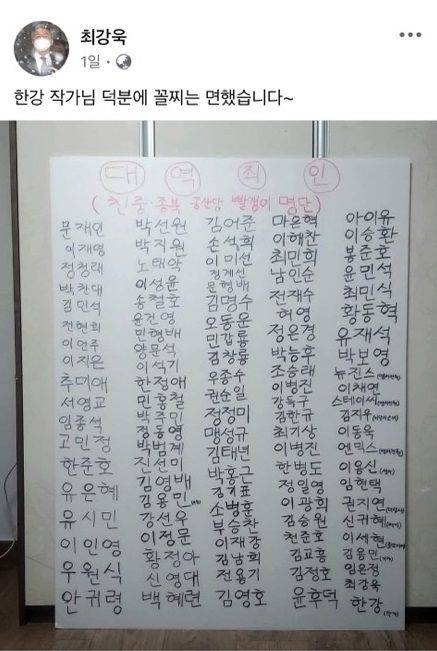 최강욱
1일 ·
한강 작가님 덕분에 꼴찌는 면했습니다~
대 역 죄 인
( 친중·종북 공산당 빨갱이 명단 )
문재인 박선원 김어준 마은혁 아이유
이재명 박지원 손석희 이해찬 이승환
정청래 노태악 이미선 최민희 봉준호
박찬대 이성윤 정계선 남인순 윤민석
김민석 송철호 문형배 전재수 최민식
전현희 윤건영 김명수 허영 황동혁
이언주 민형배 오동운 정은경 유재석
이지은 양문석 민갑룡 박능후 박보영
추미애 이석기 김창룡 조승래 뉴진스
서영교 한정애 우종수 이병진 이채연
임종석 민홍철 권순일 강득구 스테이씨
고민정 박주민 정정미 김한규 김지우
한준호 정동영 맹성규 최기상 이동욱
유은혜 박범계 김태년 이병진 엔믹스
유시민 진선미 박홍근 한병도 이용신
이인영 김영배 김기표 정일영 임현택
우원식 김용민 소병훈 이광희 권지연
안귀령 강선우 부승찬 김승원 신귀혜
이정문 이재강 천준호 이세현
황정아 김남희 김교흥 김용민
신영대 전용기 김정호 임은정
백혜련 김영호 윤후덕 최강욱
한강 (작가)